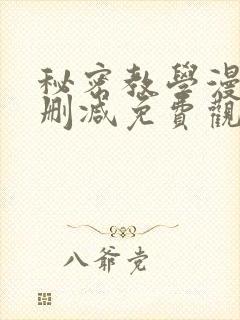 秘密教學漫
刪減免費觀
八爺党